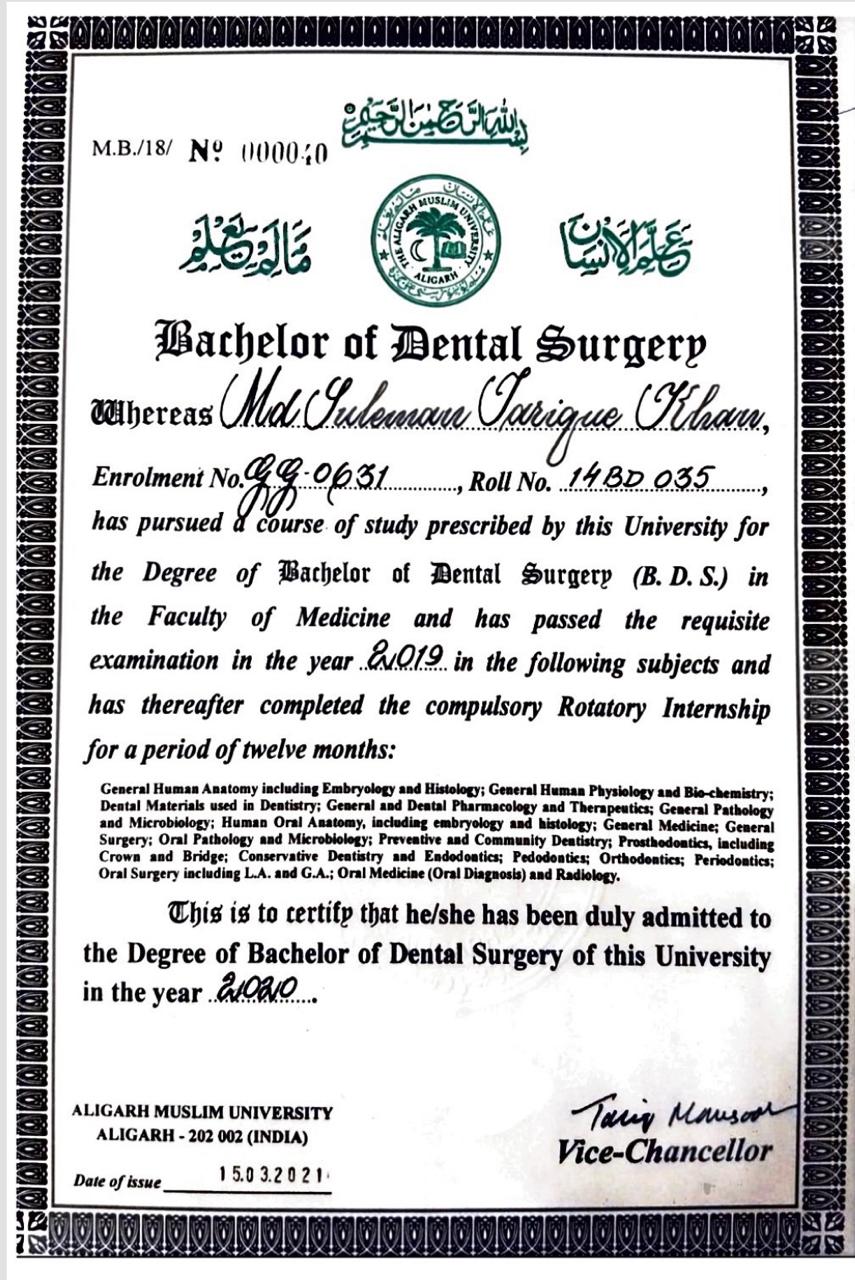 بسم الله الرحمن الرحيم
M.B./18/ Nº 000040
علم الانسان
مالم يعلم
THE ALIGARH MUSLIM UNIVERSITY
ALIGARH
Bachelor of Dental Surgery
Whereas Md Suleman Tarique Khan,
Enrolment No. GG-0631, Roll No. 14BD 035,
has pursued a course of study prescribed by this University for
the Degree of Bachelor of Dental Surgery (B. D. S.) in
the Faculty of Medicine and has passed the requisite
examination in the year 2019 in the following subjects and
has thereafter completed the compulsory Rotatory Internship
for a period of twelve months:
General Human Anatomy including Embryology and Histology; General Human Physiology and Bio-chemistry;
Dental Materials used in Dentistry; General and Dental Pharmacology and Therapeutics; General Pathology
and Microbiology; Human Oral Anatomy, including embryology and histology; General Medicine; General
Surgery; Oral Pathology and Microbiology; Preventive and Community Dentistry; Prosthodontics, including
Crown and Bridge; Conservative Dentistry and Endodontics; Pedodontics; Orthodontics; Periodontics;
Oral Surgery including L.A. and G.A.; Oral Medicine (Oral Diagnosis) and Radiology.
This is to certify that he/she has been duly admitted to
the Degree of Bachelor of Dental Surgery of this University
in the year 2020.
Tariq Mansoor
ALIGARH MUSLIM UNIVERSITY
ALIGARH - 202 002 (INDIA)
Vice-Chancellor
Date of issue 15.03.2021